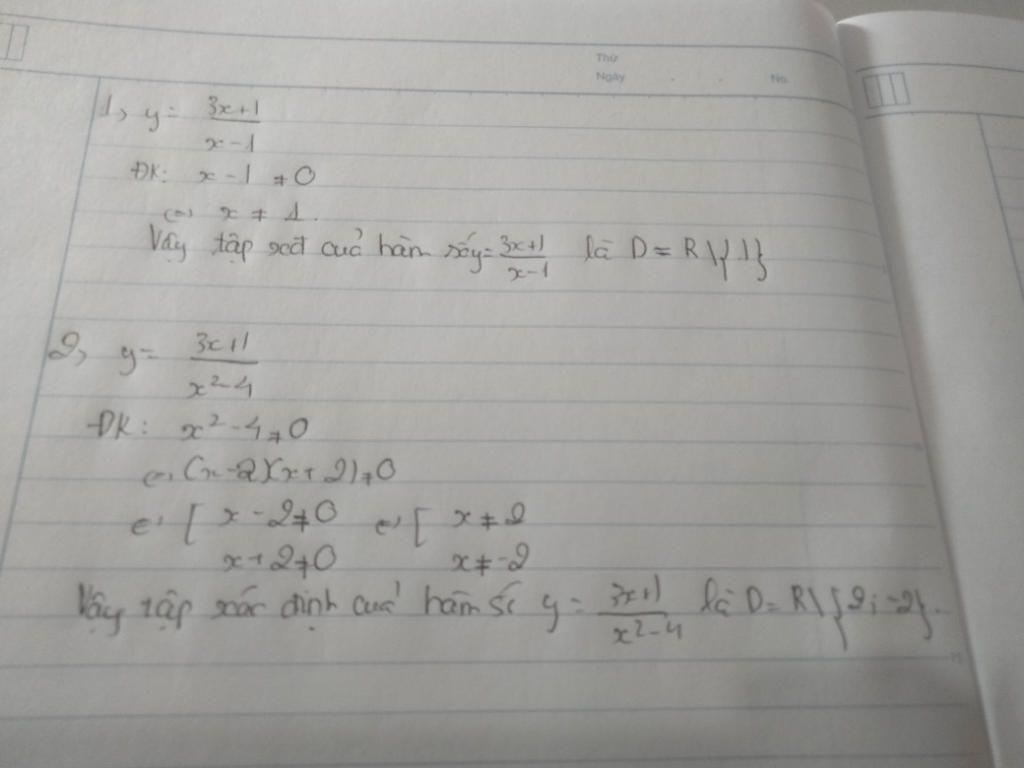 Thứ
Ngày . . No.
1, y = \frac{3x+1}{x-1}
ĐK: x - 1 ≠ 0
<=> x ≠ 1.
Vậy tập xđ của hàm số y = \frac{3x+1}{x-1} là D = R \ {1}
2, y = \frac{3x+1}{x²-4}
ĐK: x² - 4 ≠ 0
<=> (x - 2)(x + 2) ≠ 0
<=> [ x - 2 ≠ 0 <=> [ x ≠ 2
x + 2 ≠ 0 x ≠ -2
Vậy tập xác định của hàm số y = \frac{3x+1}{x²-4} là D = R \ {2; -2}.